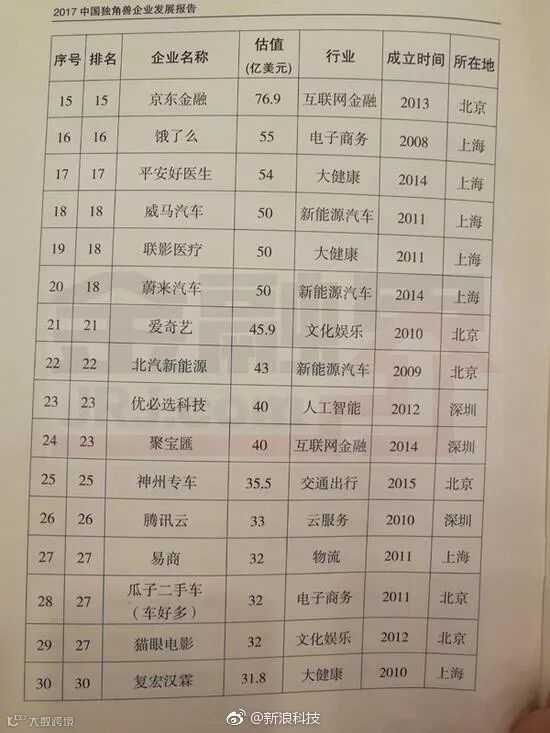 2017 中国独角兽企业发展报告
序号 排名 企业名称 估值(亿美元) 行业 成立时间 所在地
15 15 京东金融 76.9 互联网金融 2013 北京
16 16 饿了么 55 电子商务 2008 上海
17 17 平安好医生 54 大健康 2014 上海
18 18 威马汽车 50 新能源汽车 2011 上海
19 18 联影医疗 50 大健康 2011 上海
20 18 蔚来汽车 50 新能源汽车 2014 上海
21 21 爱奇艺 45.9 文化娱乐 2010 北京
22 22 北汽新能源 43 新能源汽车 2009 北京
23 23 优必选科技 40 人工智能 2012 深圳
24 23 聚宝匯 40 互联网金融 2014 深圳
25 25 神州专车 35.5 交通出行 2015 北京
26 26 腾讯云 33 云服务 2010 深圳
27 27 易商 32 物流 2011 上海
28 27 瓜子二手车(车好多) 32 电子商务 2011 北京
29 27 猫眼电影 32 文化娱乐 2012 北京
30 30 复宏汉霖 31.8 大健康 2010 上海
大数跨境
@新浪科技